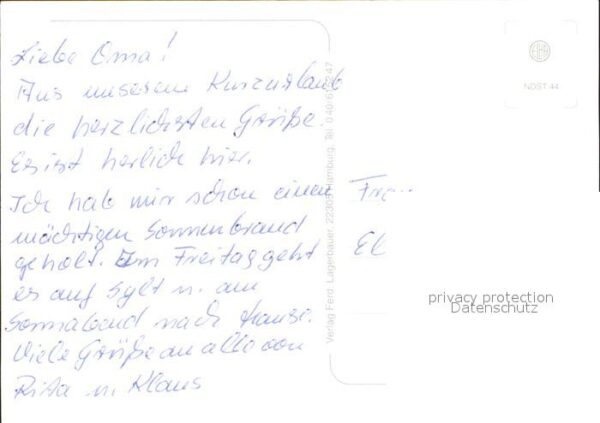 Liebe Oma!
Aus unserem Kurzurlaub
die herzlichsten Grüße.
Es ist herlich hier.
Ich hab mir schon einen
mächtigen Sonnenbrand
geholt. Am Freitag geht
es auf Sylt u. am
Sonnabend nach Hause.
Viele Grüße an alle von
Rita u. Klaus
Verlag Ferd. Lagerbauer, Hamburg, Tel.
NDST 44
Fra
El
privacy protection
Datenschutz